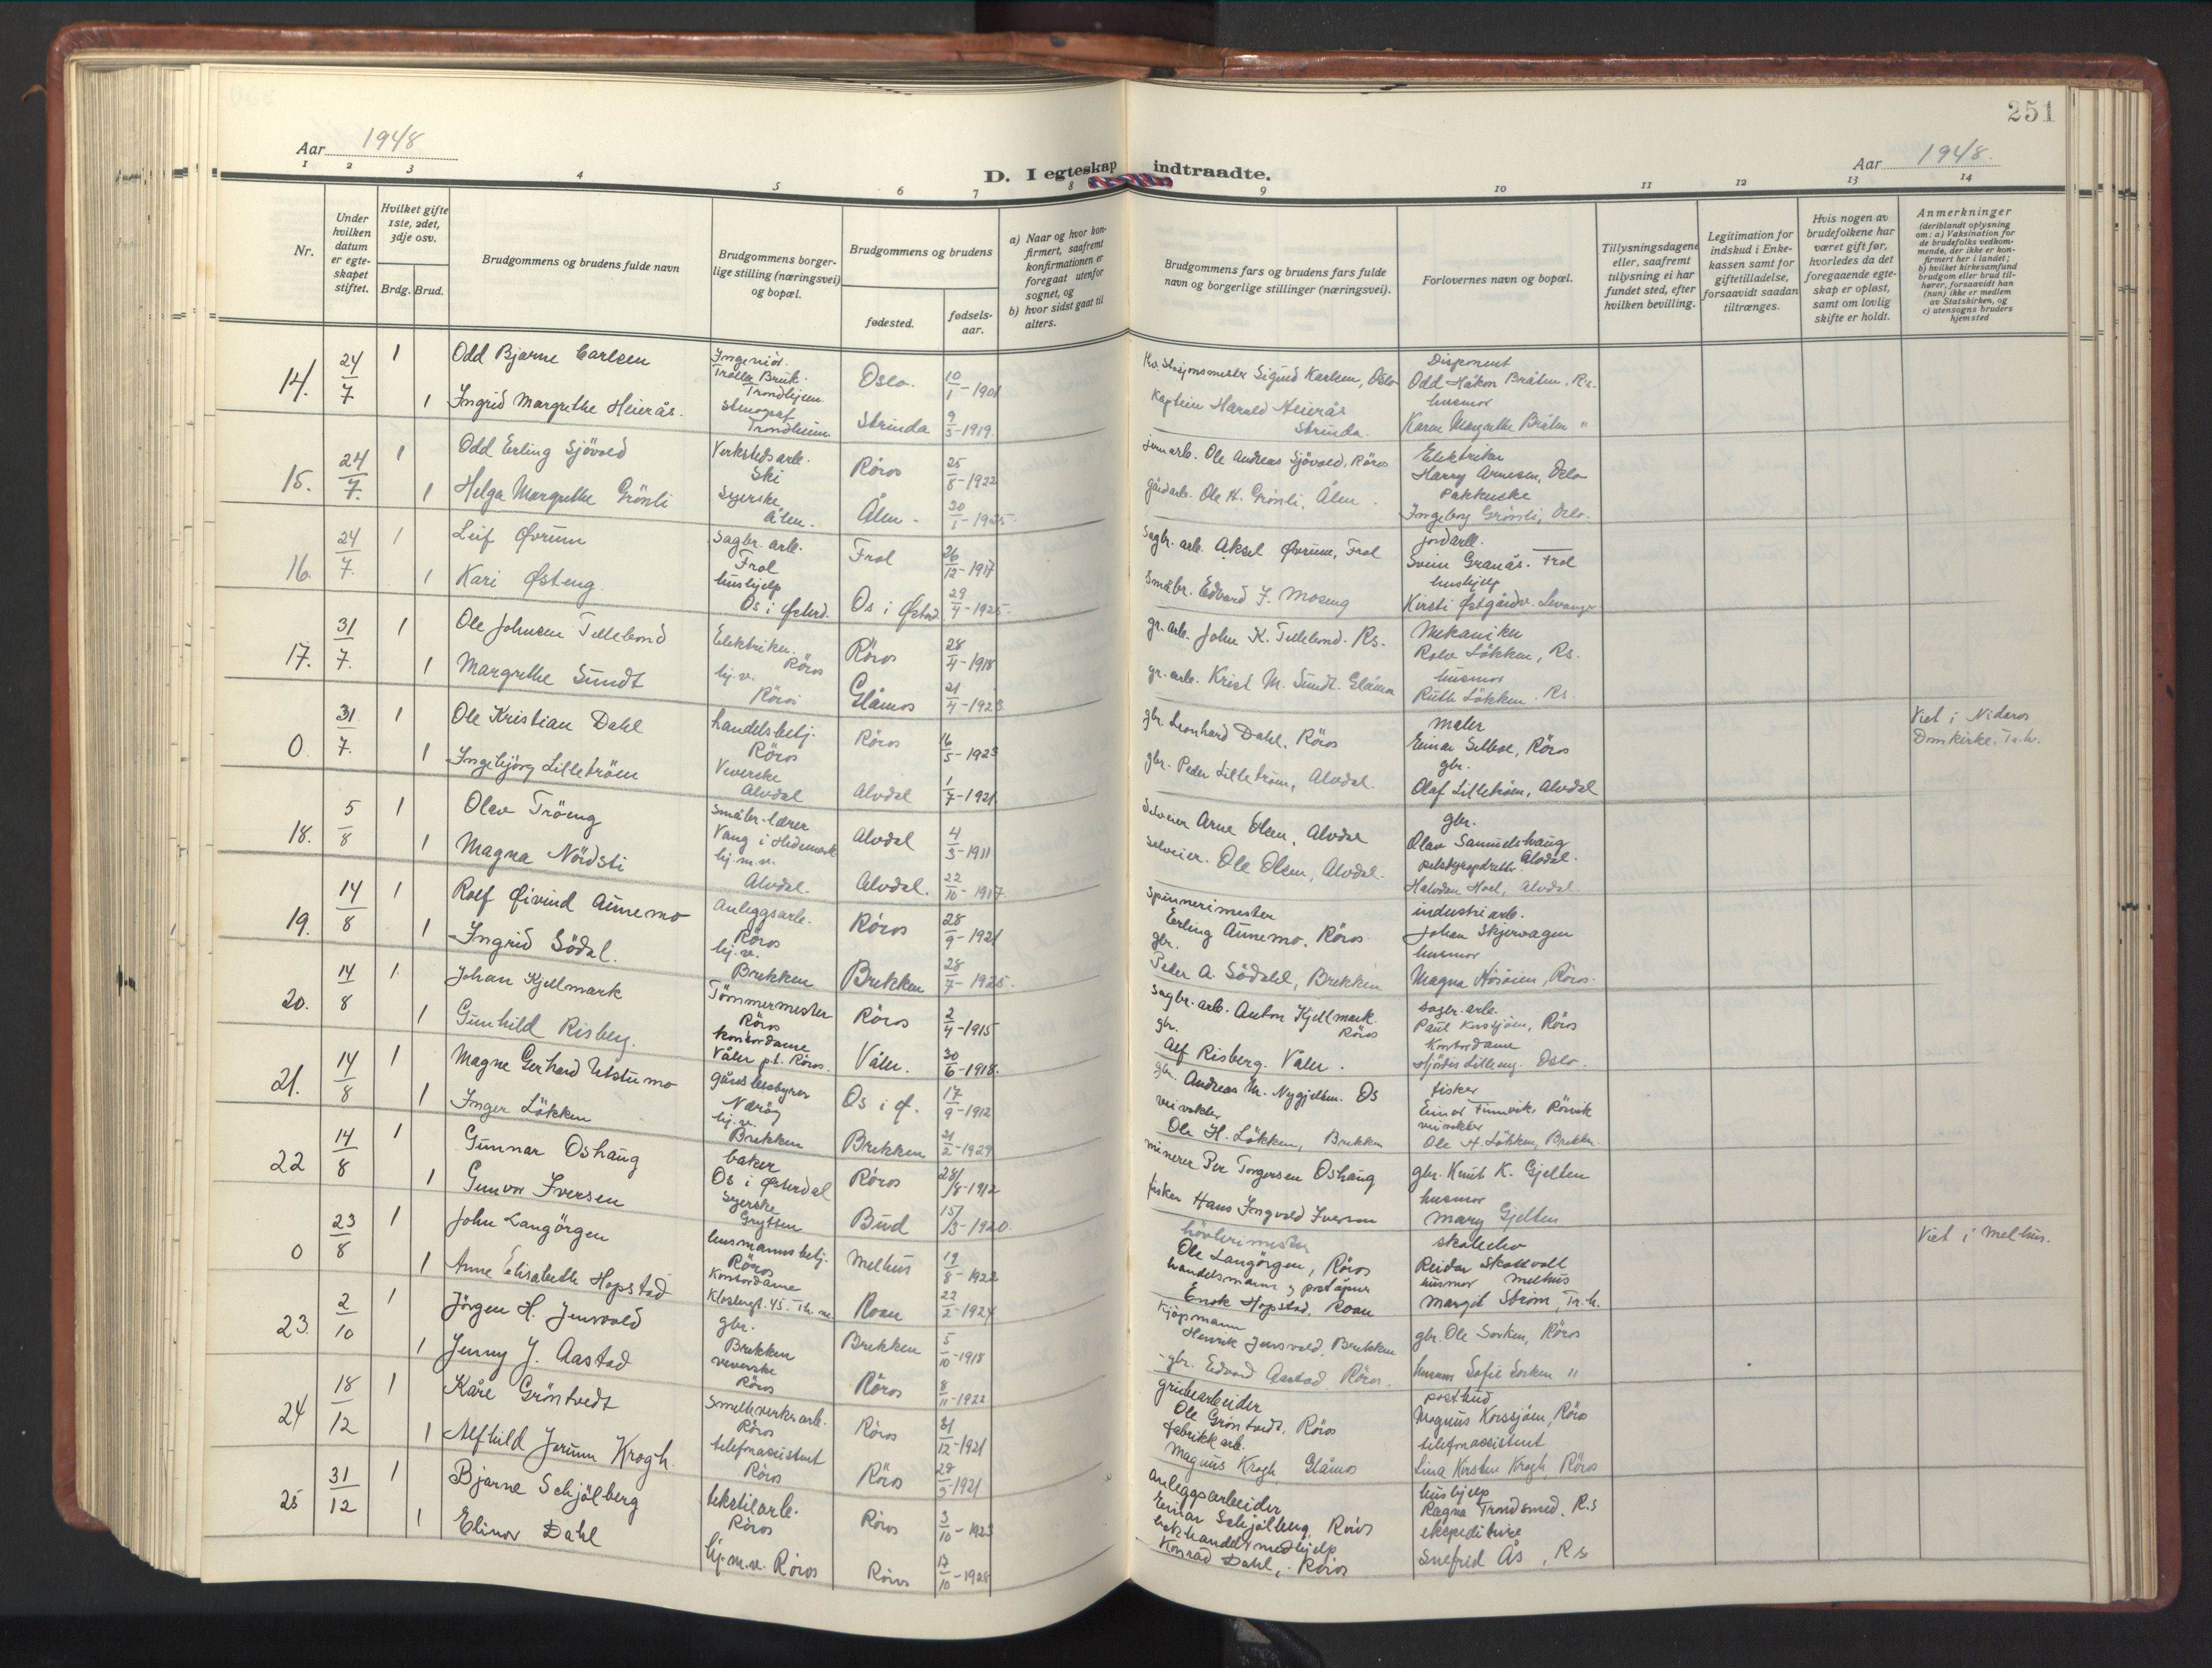 251
Aar 1948
D. I egteskap indtraadte.
Aar 1948.
1 2 3 4 5 6 7 8 9 10 11 12 13 14
Nr.
Under hvilken datum er egteskapet stiftet.
Hvilket gifte 1ste, 2det, 3dje osv.
Brdg. Brud.
Brudgommens og brudens fulde navn
Brudgommens borgerlige stilling (næringsvei) og bopæl.
Brudgommens og brudens
fødested.
fødselsaar.
a) Naar og hvor konfirmert, saafremt konfirmationen er foregaat utenfor sognet, og
b) hvor sidst gaat til alters.
Brudgommens fars og brudens fars fulde navn og borgerlige stillinger (næringsvei).
Forlovernes navn og bopæl.
Tillysningsdagene eller, saafremt tillysning ei har fundet sted, efter hvilken bevilling.
Legitimation for indskud i Enkekassen samt for giftetilladelse, forsaavidt saadan tiltrænges.
Hvis nogen av brudefolkene har været gift før, hvorledes da det foregaaende egteskap er opløst, samt om lovlig skifte er holdt.
Anmerkninger (deriblandt oplysning om: a) Vaksination for de brudefolks vedkommende, der ikke er konfirmert her i landet; b) hvilket kirkesamfund brudgom eller brud tilhører, forsaavidt han (hun) ikke er medlem av Statskirken, og c) utensogns bruders hjemsted
14. 24/7 1 Odd Bjarne Carlsen Ingeniør. Trolla Bruk. Trondhjem. Oslo. 10/1-1901 Sigurd Karlsen, Oslo Disponent Odd Håkon Bråten, Rs.
1 Ingrid Margrethe Heierås. stenograf Trondheim. Strinda 9/3-1919. Kaptein Harald Heierås Strinda. husmor Karen Margrethe Bråten "
15. 24/7. 1 Odd Erling Sjövold Verkstedsarb. Ski Röros 25/8-1922 jernarb. Ole Andreas Sjövold, Röros Elektriker Harry Arnesen, Oslo
1 Helga Margrethe Grönli Syerske Ålen. Ålen - 30/1-1925. gårdarb. Ole H. Grönli, Ålen. Pakkerske Ingeborg Grönli, Oslo.
16. 24/7. 1 Leif Øvrum Sagbr. arb. Frol Frol 26/12-1917 Sagbr. arb. Aksel Øvrum, Frol jordarb. Svein Granås. Frol
1 Kari Østeng. hushjelp Os i Østerd. Os i Østerd. 29/4-1925. Småbr. Edvard J. Moseng hushjelp Kirsti Østgård. Levanger
17. 31/7. 1 Ole Johnsen Tillebond Elektriker. Röros Röros 28/4-1918 gr. arb. John K. Tillebond. Rs. Mekaniker Rolv Løkken, Rs.
1 Margrethe Sundt hj. v. Röros Glåmos 21/4-1923. gr. arb. Krist M. Sundt. Glåmos husmor Ruth Løkken. Rs.
0. 31/7. 1 Ole Kristian Dahl handelsbetj. Röros Röros 16/5-1923 gbr. Leonhard Dahl, Röros maler Einar Selboe, Röros Viet i Nidaros Domkirke. Tr.h.
1 Ingebjörg Lilletröen Veverske Alvdal Alvdal 1/7-1921. gbr. Peder Lilletröen, Alvdal. gbr. Olaf Lilletröen, Alvdal
18. 5/8 1 Olav Tröeng Småbr-lærer Vang i Hedemark Alvdal 4/3-1911 Selveier Arne Olsen, Alvdal gbr. Olav Samuelshaug Alvdal.
1 Magna Nordsti hj.m.v. Alvdal. Alvdal. 22/10-1917. selveier. Ole Olsen, Alvdal. pelsdyropdretter Halvdan Hoel, Alvdal
19. 14/8 1 Rolf Øivind Aunemo Anleggsarb. Röros Röros 28/9-1921 spinnerimester Erling Aunemo, Röros industriarb. Johan Skjervagen
1 Ingrid Södal. hj.v. Brekken Brekken 28/7-1925. gbr. Peder A. Södahl, Brekken husmor Magna Hosöien, Röros.
20. 14/8 1. Johan Kjellmark Tömmermester Röros Röros 2/4-1915 sagbr. arb. Anton Kjellmark. Röros sagbr. arb. Paul Korssjöen, Röros
1 Gunhild Risberg. kontordame Våler pt. Röros. Våler. 30/6-1918. gbr. Alf Risberg. Våler. Kontordame Hjördis Lilleeng. Oslo.
21. 14/8 1 Magne Gerhard Utstumo gårdsbestyrer Nærøy Os i Ø. 17/9-1912 gbr. Andreas M. Nygjelten. Os fisker Einar Finnvik, Rörvik
1 Inger Løkken hj.v. Brekken Brekken 21/2-1929 veivokter Ole H. Løkken, Brekken veivokter Ole H. Løkken, Brekken.
22 14/8 1 Gunnar Oshaug baker Os i Østerdal Röros 28/8-1912 minerer Per Torgersen Oshaug gbr. Knut K. Gjelten
1 Gunvor Iversen Syerske Grytten Bud 15/3-1920. fisker Hans Ingvald Iversen husmor Mary Gjelten
0 23/8 1 John Langörgen husmannsbetj. Röros Melhus 19/8-1922 hövlerimester Ole Langörgen, Röros skoleelev Reidar Skottvoll Melhus Viet i Melhus.
1 Anne Elisabeth Hopstad Kontordame Klostergt. 45. Tr.h. Roan 22/2-1924 handelsmann og poståpner Enok Hopstad, Roan husmor Margit Ström, Tr.h.
23. 2/10 1 Jörgen H. Jensvold gbr. Brekken Brekken 5/10-1918 Kjöpmann Henrik Jensvold, Brekken gbr. Ole Sorken, Röros
1 Jenny J. Aastad veverske Röros Röros 8/11-1922 gbr. Edvard Aastad Röros. husmor Sofie Sorken "
24 18/12 1 Kåre Gröntvedt Smelteverksarb. Röros Röros 31/12-1921 grubearbeider Ole Gröntvedt, Röros postbud Magnus Korssjöen, Röros
1 Alfhild Jorunn Krogh. telefonassistent Röros Röros 29/5-1921 fabrikkarb. Magnus Krogh Glåmos telefonassistent Lina Kirstine Krogh, Röros
25 31/12 1 Bjarne Schjölberg tekstilarb. Röros Röros 3/10-1923 anleggsarbeider Einar Schjölberg, Röros hushjelp Ragna Trondsmed, R.s
1 Elinor Dahl hj.m.v. Röros Röros 17/10-1928 Konrad Dahl, Röros ekspeditrise Snefrid Ås, R.s